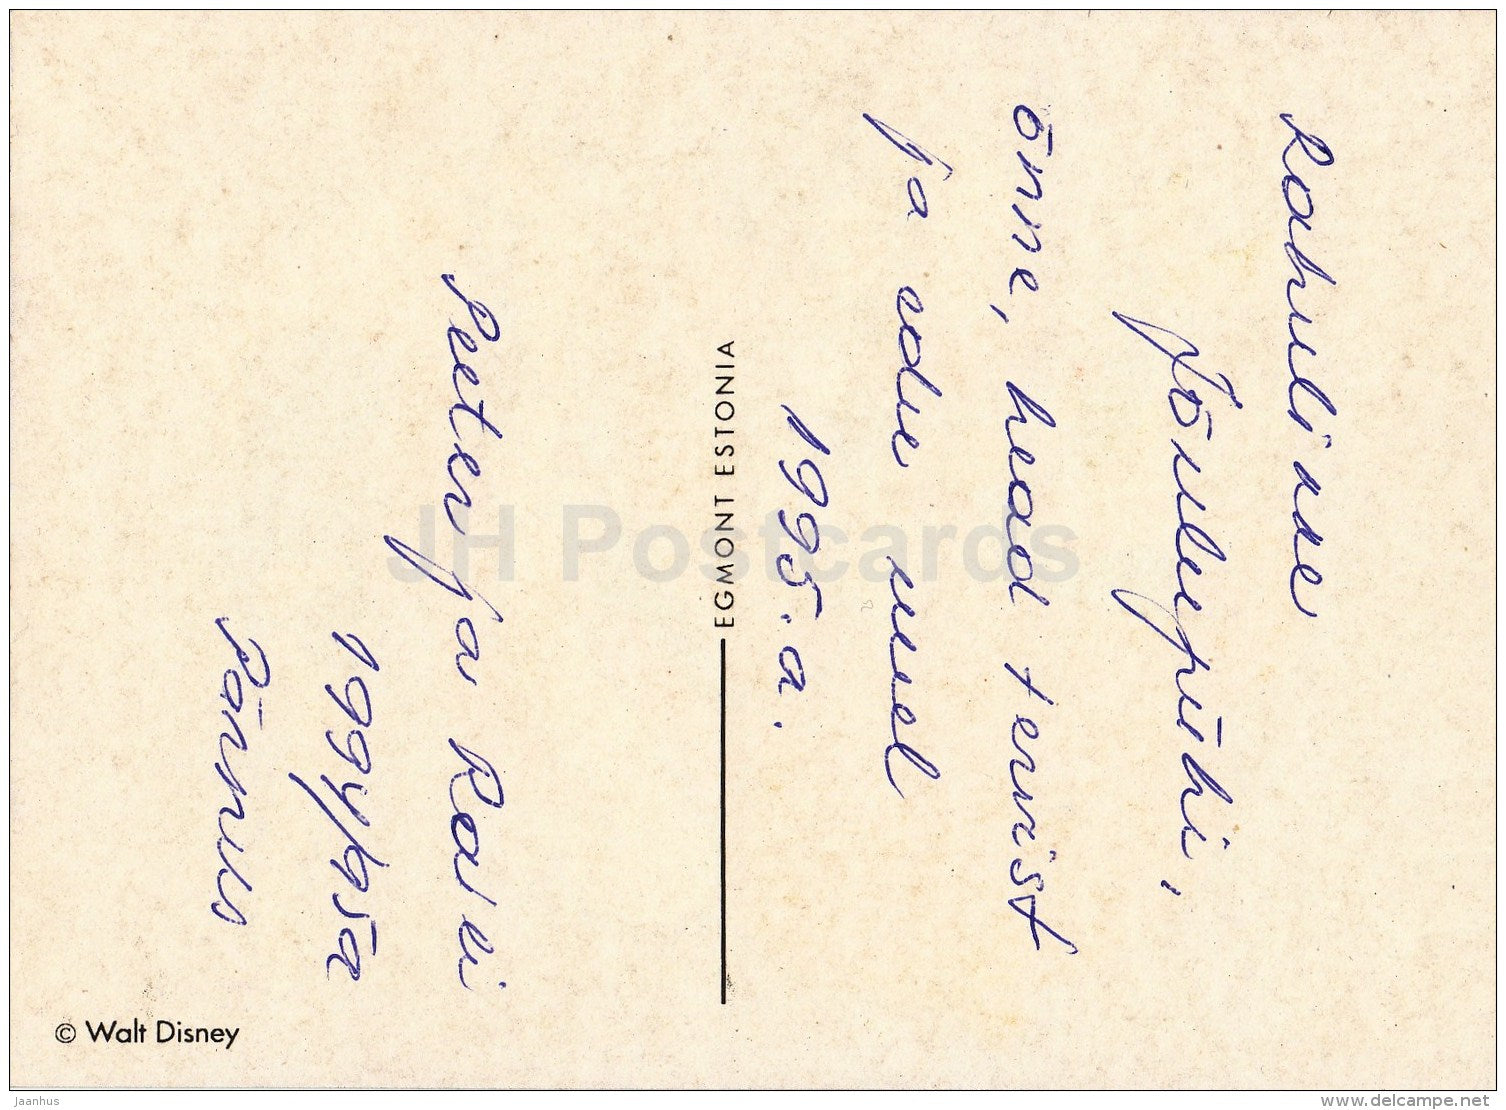 Rahuline
jõulupühi,
õnne, head tervist
ja edu uuel
1995.a.
Peeter ja Raivi
1994/95a
Pärnus
EGMONT ESTONIA
© Walt Disney
JH Postcards
Jaanhus
www.delcampe.net